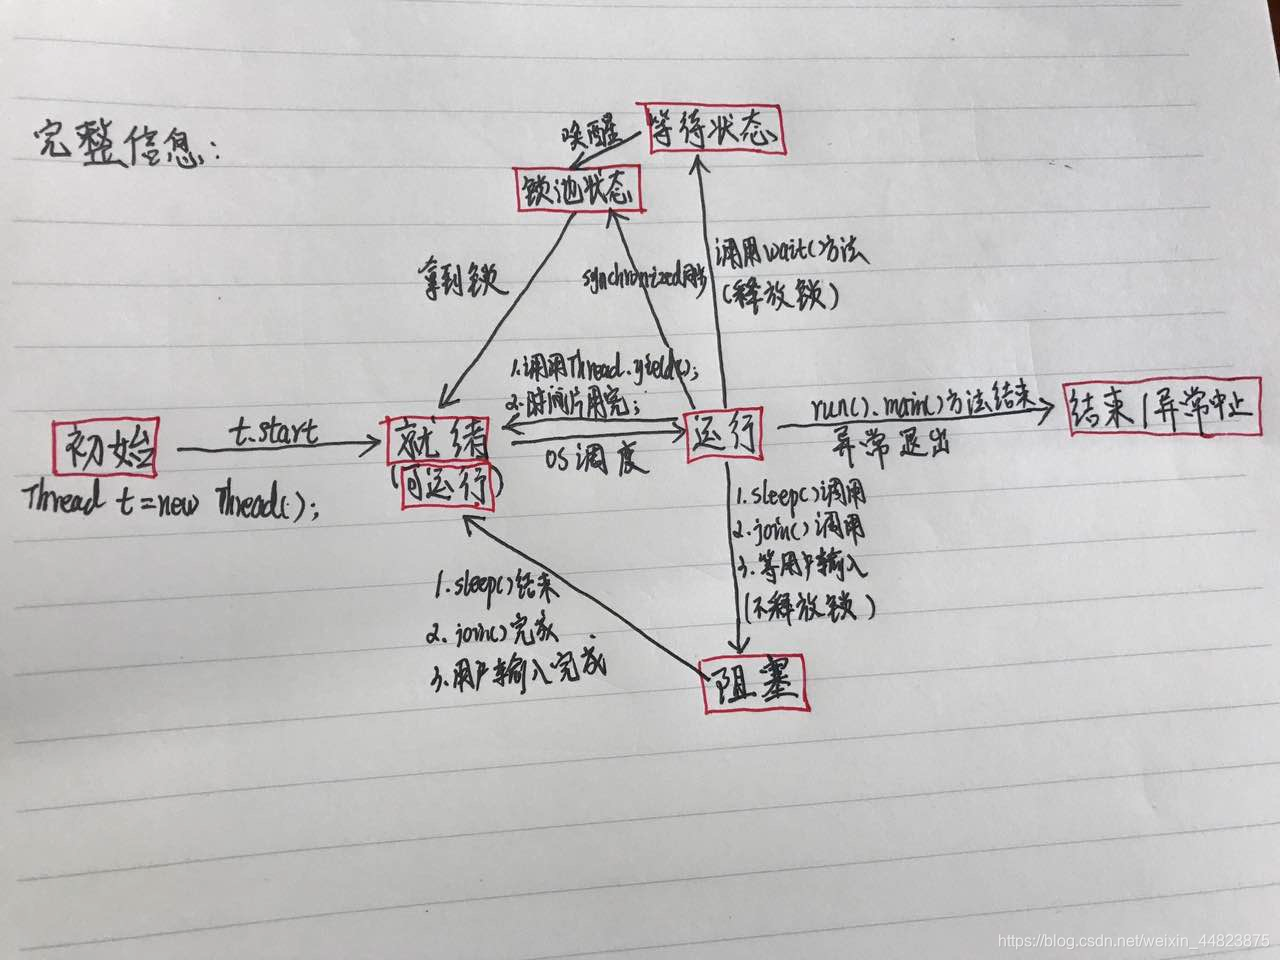 完整信息:
唤醒
等待状态
锁池状态
拿到锁
synchronized同步
调用wait()方法
(释放锁)
1.调用Thread.yield();
2.时间片用完;
初始
t.start
就绪
(可运行)
OS调度
运行
run().main()方法结束
异常退出
结束/异常中止
Thread t=new Thread();
1.sleep()调用
2.join()调用
3.等用户输入
(不释放锁)
1.sleep()结束
2.join()完成
3.用户输入完成
阻塞
https://blog.csdn.net/weixin_44823875